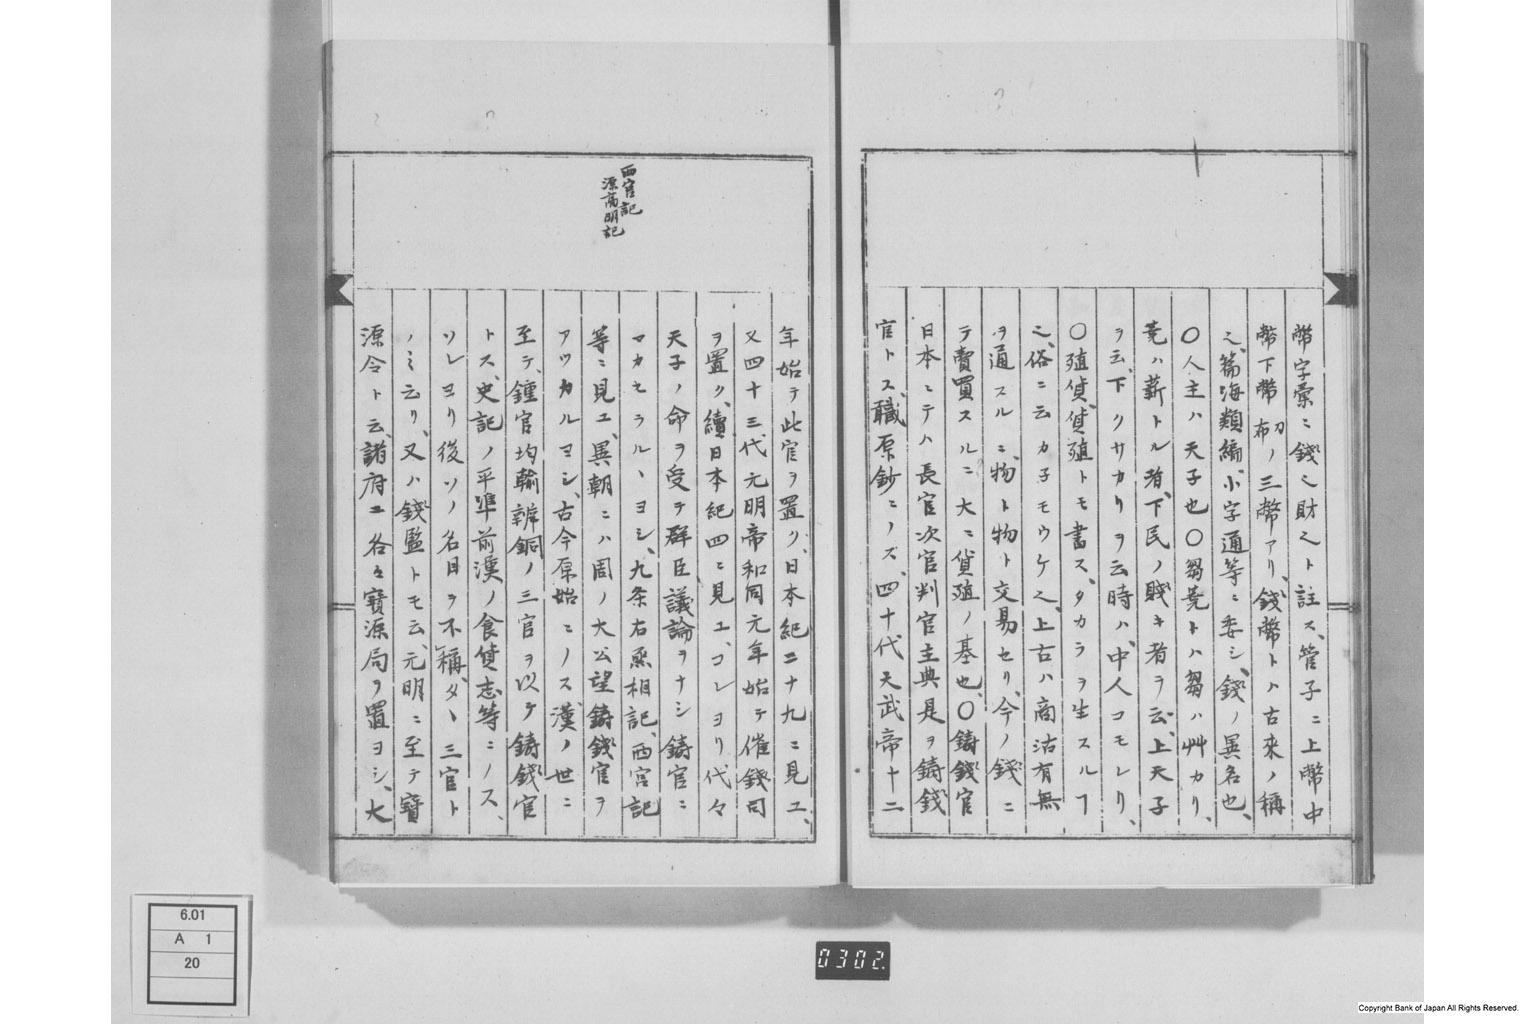 幣字彙ニ錢也財也ト註ス、管子ニ上幣中
幣下幣切布ノ三幣アリ、錢幣トハ古來ノ稱
也、篇海類編小字通等ニ委シ、錢ノ異名也、
〇人主ハ天子也〇芻蕘トハ芻ハ艸カリ、
蕘ハ薪トル者、下民ノ賎キ者ヲ云、上天子
ヲ云、下クサカリヲ云時ハ、中人コモレリ、
〇殖貨、貨殖トモ書ス、タカラヲ生スルヿ
也、俗ニ云カ子モウケ也、上古ハ商沽有無
ヲ通スルニ、物ト物ト交易セリ、今ノ錢ニ
テ賣買スルニ大ニ貨殖ノ基也、〇鑄錢官
日本ニテハ長官次官判官主典是ヲ鑄錢
官トス、職原鈔ニノス、四十代天武帝十二
年始テ此官ヲ置ク、日本紀二十九ニ見エ、
又四十三代元明帝和同元年始テ催錢司
ヲ置ク、續日本紀四ニ見エ、コレヨリ代々
天子ノ命ヲ受テ群臣議論ヲナシ鑄官ニ
マカセラルヽヨシ、九条右丞相記、西宮記
等ニ見エ、異朝ニハ周ノ大公望鑄錢官ヲ
アツカルヨシ、古今原始ニノス、漢ノ世ニ
至テ、鍾官均輸辨銅ノ三官ヲ以テ鑄錢官
トス、史記ノ平凖前漢ノ食貨志等ニノス、
ソレヨリ後ソノ名目ヲ不稱、タヽ三官ト
ノミ云リ、又ハ錢監トモ云、元明ニ至テ寶
源令ト云、諸府エ各々寶源局ヲ置ヨシ、大
西宮記
源高明記
6.01
A 1
20
0302.
Copyright Bank of Japan All Rights Reserved.